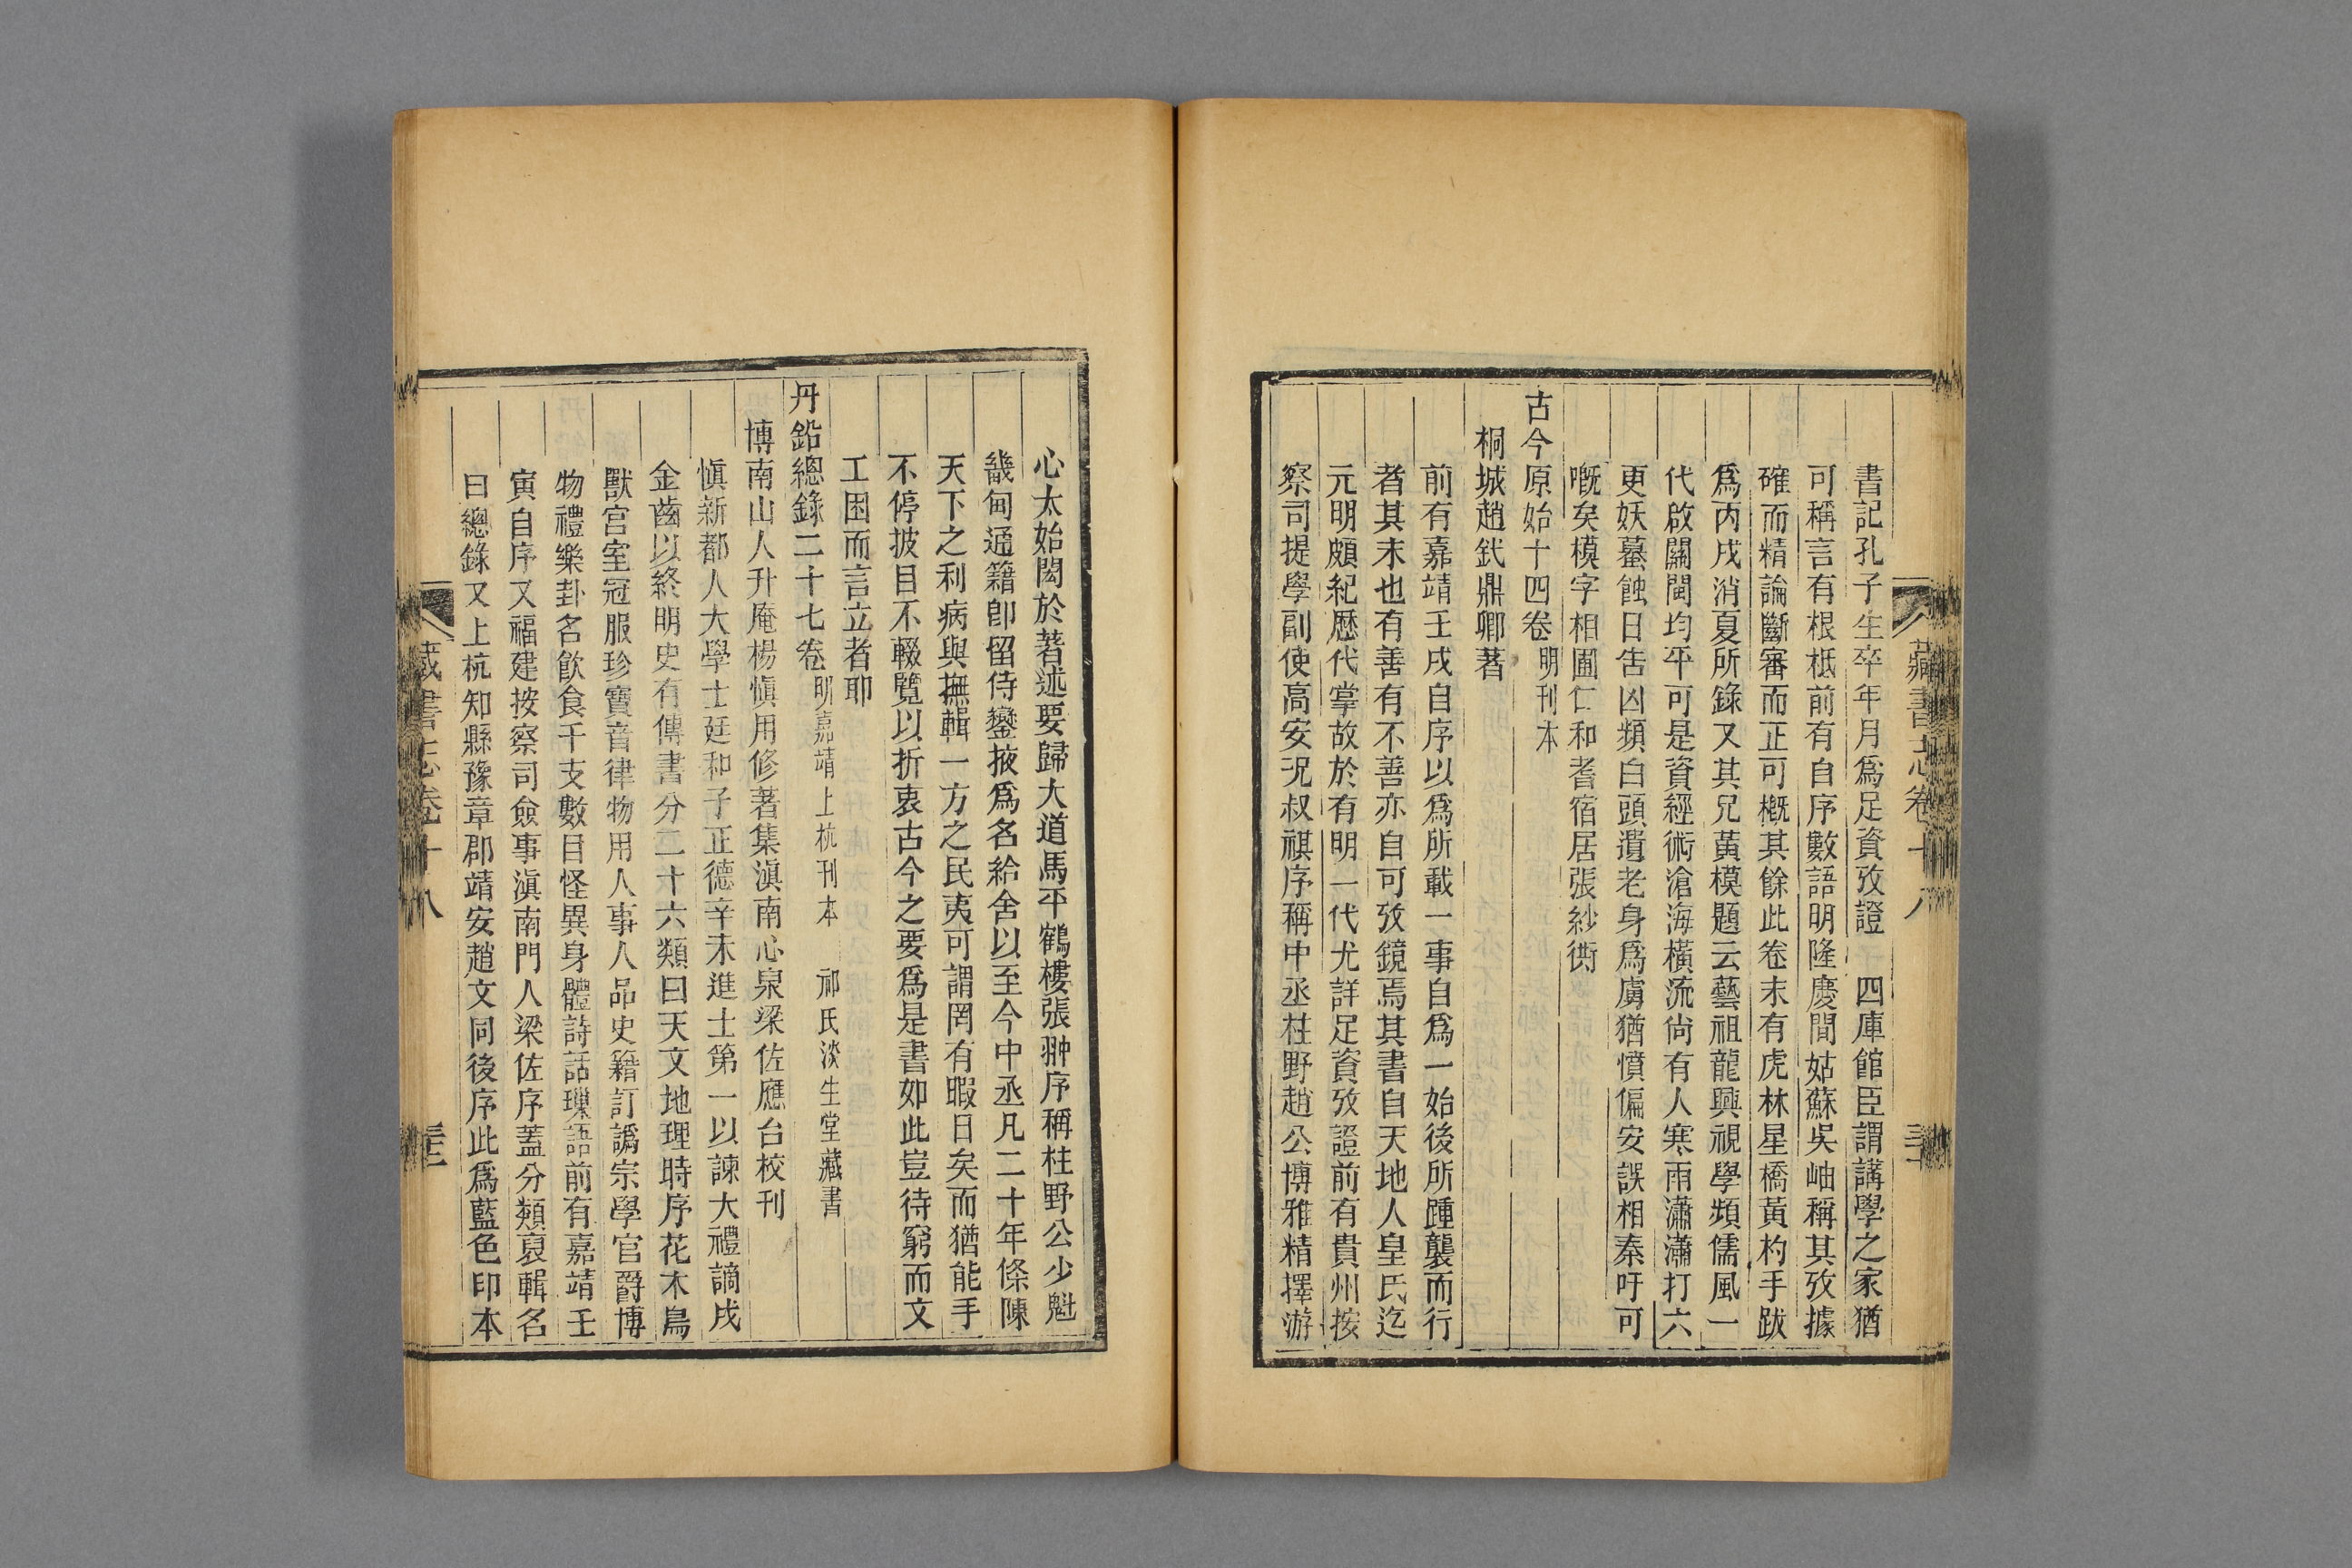 書記孔子生卒年月爲足資攷證　四庫館臣謂講學之家猶
可稱言有根柢前有自序數語明隆慶間姑蘇吳岫稱其攷據
確而精論斷審而正可槪其餘此卷末有虎林星橋黃杓手跋
爲丙戌消夏所錄又其兄黃模題云藝祖龍興視學頻儒風一
代啟關閩均平可是資經術滄海橫流尙有人寒雨瀟瀟打六
更妖蟇蝕日吿凶頻白頭遺老身爲虜猶憤偏安誤相秦吁可
嘅矣模字相圃仁和耆宿居張紗衖
古今原始十四卷 明刊本
桐城趙釴鼎卿著
前有嘉靖壬戌自序以爲所載一事自爲一始後所踵襲而行
者其末也有善有不善亦自可攷鏡焉其書自天地人皇氏迄
元明頗紀歷代掌故於有明一代尤詳足資攷證前有貴州按
察司提學副使高安況叔祺序稱中丞柱野趙公博雅精擇游
藏書志卷十八
心太始閎於著述要歸大道馬平鶴樓張翀序稱柱野公少魁
畿甸通籍卽留侍鑾掖爲名給舍以至今中丞凡二十年條陳
天下之利病與撫輯一方之民夷可謂罔有暇日矣而猶能手
不停披目不輟覽以折衷古今之要爲是書如此豈待窮而文
工困而言立者耶
丹鉛總錄二十七卷 明嘉靖上杭刊本　祁氏淡生堂藏書
博南山人升庵楊愼用修著集滇南心泉梁佐應台校刊
愼新都人大學士廷和子正德辛未進士第一以諫大禮謫戍
金齒以終明史有傳書分二十六類曰天文地理時序花木鳥
獸宮室冠服珍寶音律物用人事人品史籍訂譌宗學官爵博
物禮樂卦名飮食干支數目怪異身體詩話璅語前有嘉靖壬
寅自序又福建按察司僉事滇南門人梁佐序蓋分類裒輯名
曰總錄又上杭知縣豫章郡靖安趙文同後序此爲藍色印本
藏書志卷十八